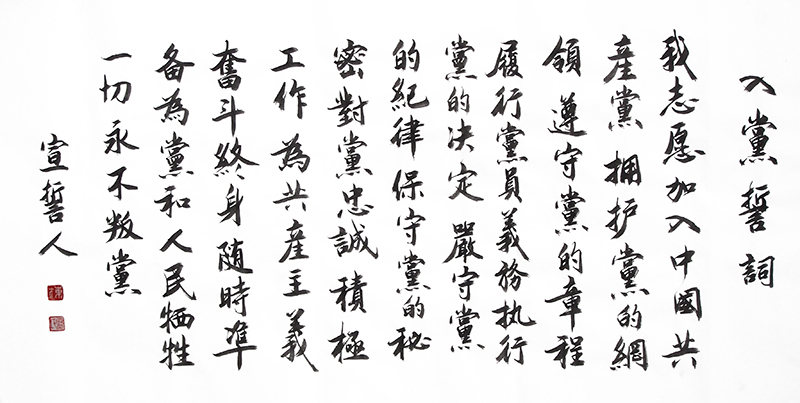 入黨誓詞
我志愿加入中國共
産黨拥护黨的綱
領遵守黨的章程
履行黨員義務执行
黨的决定嚴守黨
的紀律保守黨的秘
密對黨忠誠積極
工作為共産主義
奮斗終身随時準
备為黨和人民牺牲
一切永不叛黨
宣誓人